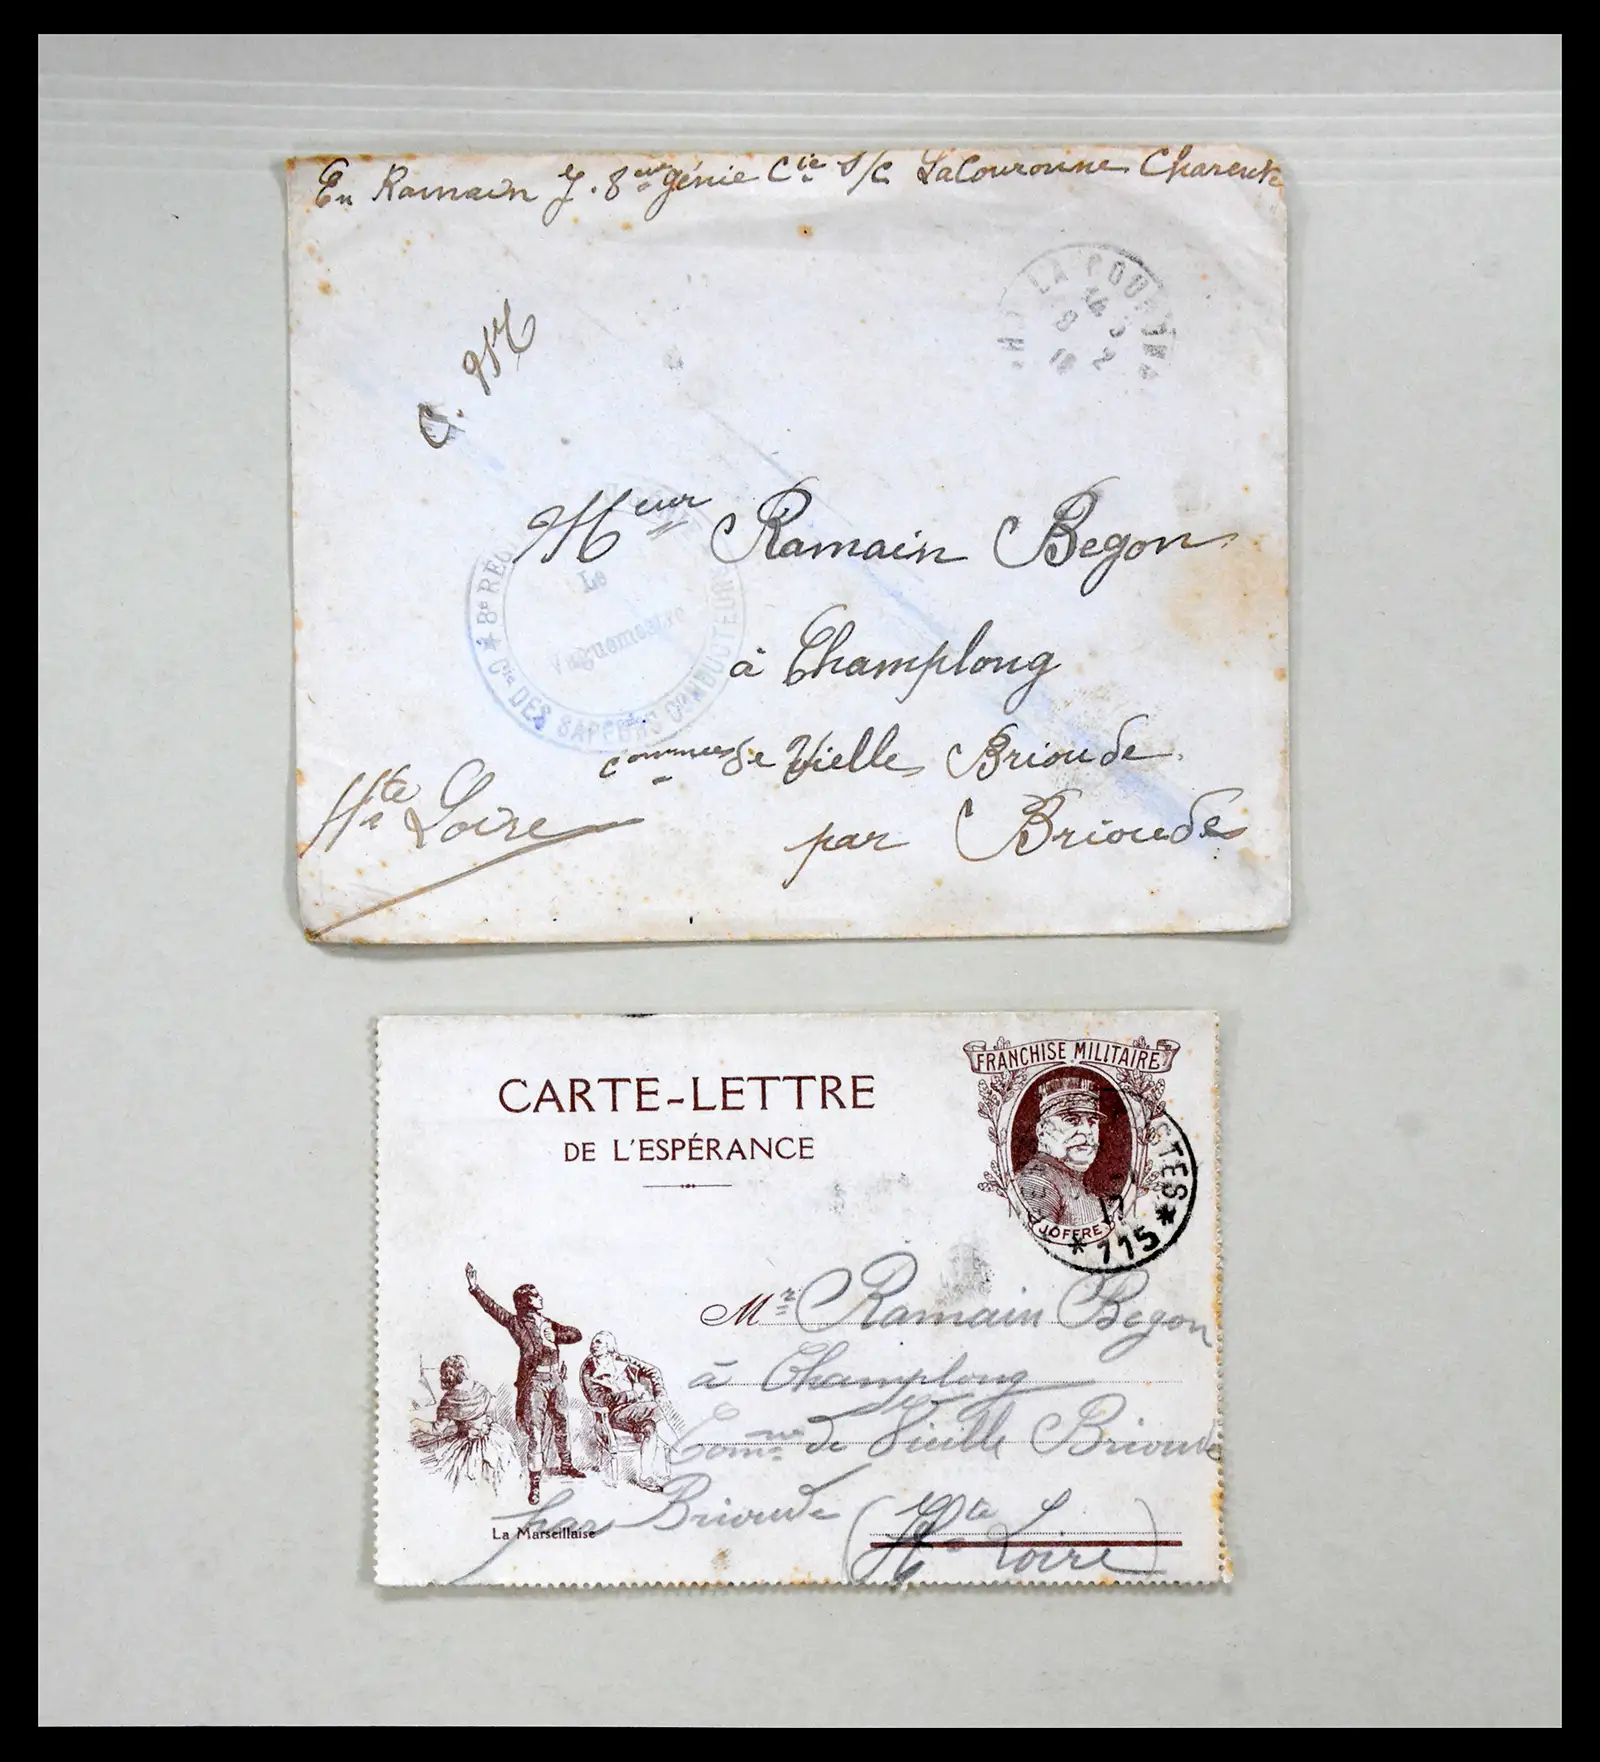 En Ramain J. 8eme génie Cie S/C LaCouronne Charente
LA COURONNE
C. 9SM
Meur Ramain Begon
8e RÉG
Le
Vaguemestre
Cie DES SAPEURS CONDUCTEURS
à Champlong
commune de Vielle Brioude
Hte Loire
par Brioude
FRANCHISE MILITAIRE
CARTE-LETTRE
DE L'ESPÉRANCE
JOFFRE
POSTES
17
* 115 *
Mr Ramain Begon
à Champlong
Comne de Vieille Brioude
par Brioude (Hte Loire)
La Marseillaise